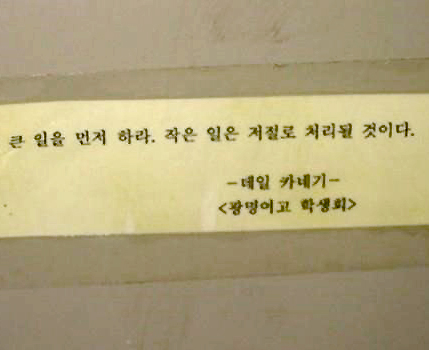 큰 일을 먼저 하라. 작은 일은 저절로 처리될 것이다.
-데일 카네기-
<광명여고 학생회>